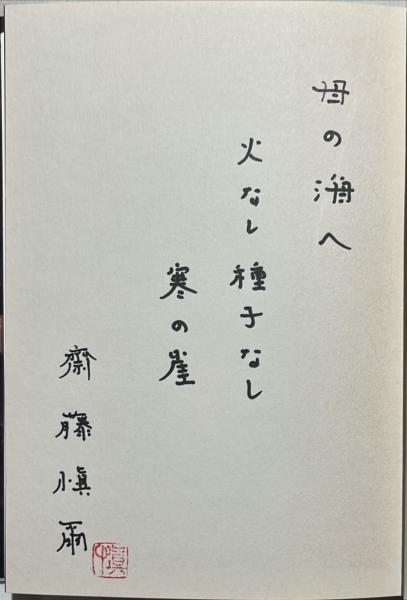 母の海へ
火なし種子なし
寒の崖
齋藤愼爾
愼